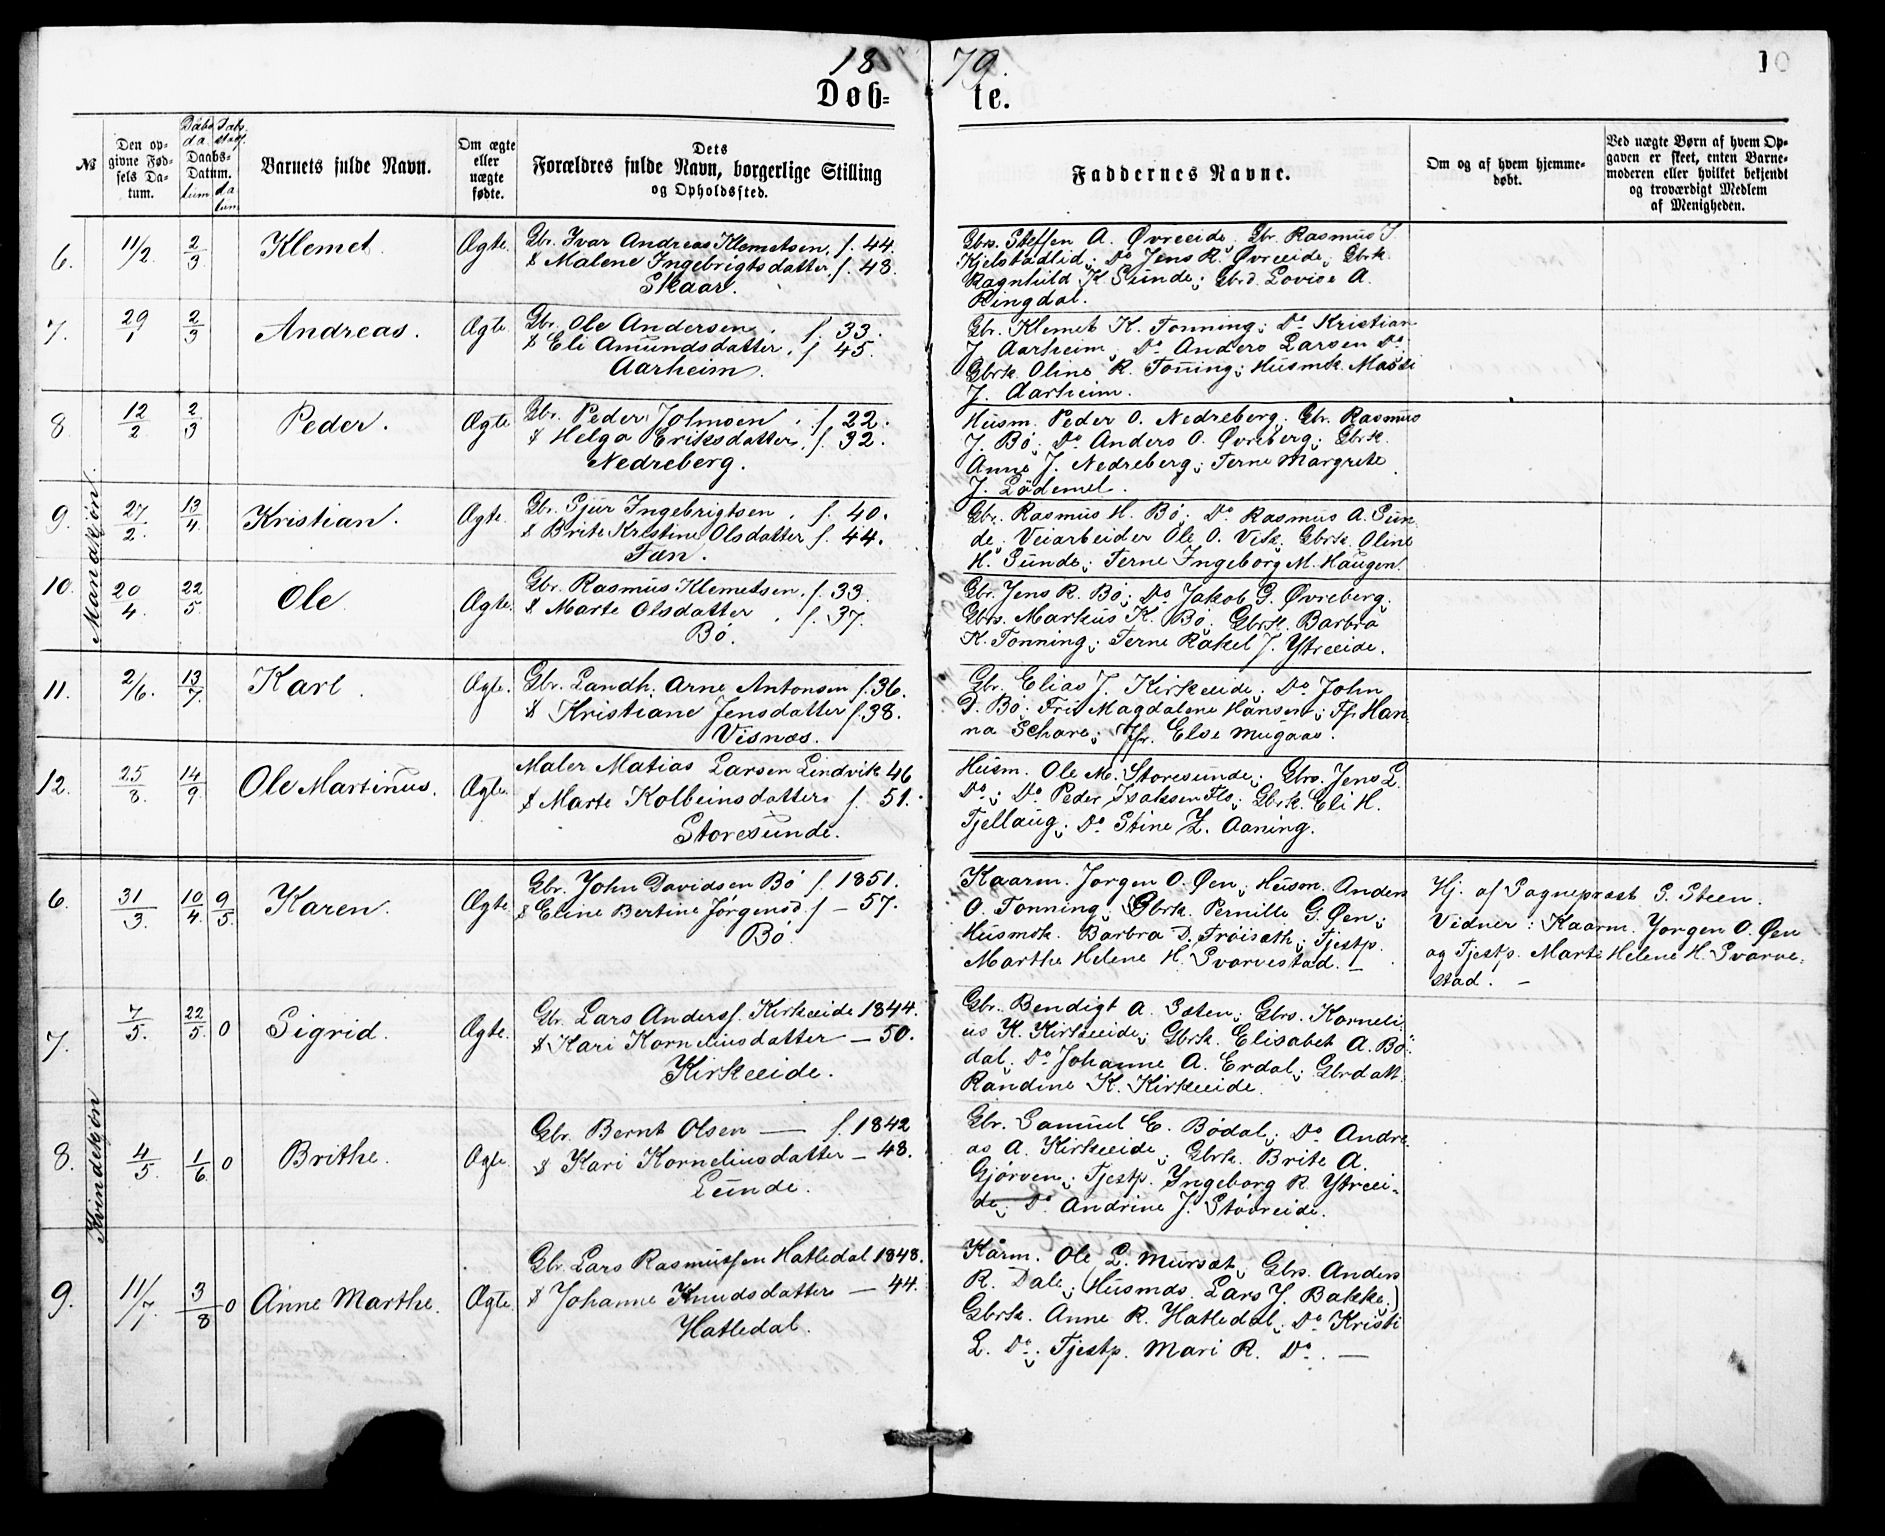 1879
10
Døbte.
№
Den opgivne Fødsels Datum.
Daabs-Datum.
Barnets fulde Navn.
Om ægte eller uægte fødte.
Dets Forældres fulde Navn, borgerlige Stilling og Opholdssted.
Faddernes Navne.
Om og af hvem hjemmedøbt.
Ved uægte Børn af hvem Opgaven er skeet, enten Barnemoderen eller hvilket bekjendt og troværdigt Medlem af Menigheden.
Mandkjøn
6. 11/2 2/3 Klemet. Ægte.
Gbr. Ivar Andreas Klemetsen, f. 44.
& Malene Ingebrigtsdatter, f. 48.
Skaar.
Gbrs. Steffen A. Øvreeide; Gbr. Rasmus J.
Kjelstadlid; Do Jens R. Øvreeide; Gbrk.
Ragnhild K. Sunde; Gbrd. Lovise A.
Ringdal.
7. 29/1 2/3 Andreas. Ægte
Gbr. Ole Andersen. f. 33.
& Eli Amundsdatter. f. 45.
Aarheim.
Gbr. Klemet K. Tonning; Do Kristian
J. Aarheim; Do Anders Larsen Do
Gbrk. Oline R. Tonning; Husmk. Massi
J. Aarheim.
8 12/2 2/3 Peder. Ægte
Gbr. Peder Johnsen. f. 22.
& Helga Eriksdatter. f. 32.
Nedreberg.
Husm. Peder O. Nedreberg; Gbr. Rasmus
J. Bö; Do Anders O. Øvreberg; Gbrk.
Anne J. Nedreberg; Terne Margrete
J. Lödemel.
9. 27/2. 13/4 Kristian. Ægte.
Gbr. Sjur Ingebrigtsen. f. 40.
& Brite Kristine Olsdatter f. 44.
Tæn.
Gbr. Rasmus H. Bö; Do Rasmus A. Sun-
de; Veiarbeider Ole O. Vik; Gbrk. Oline
H. Sunde; Terne Ingeborg M. Haugen.
10. 20/4. 22/5 Ole Ægte.
Gbr. Rasmus Klemetsen. f. 33.
& Marte Olsdatter. f. 37.
Bö.
Gbr. Jens R. Bö; Do Jakob G. Øvreberg;
Gbrs. Markus K. Bö; Gbrk. Barbra
K. Tonning; Terne Rakel J. Ytreeide.
11. 2/6. 13/7. Karl. Ægte.
Gbr. Landh. Arne Antonsen f. 36.
& Kristiane Jensdatter f. 38.
Visnæs.
Gbr. Elias J. Kirkeeide; Do John
D. Bö; Fru Magdalene Hansen; Jfr. Han-
na Schare; Jfr. Else Mugaas.
12. 25/8 14/9 Ole Martinus. Ægte.
Maler Matias Larsen Lindvik 46
& Marte Kolbeinsdatter f. 51.
Storesunde.
Husm. Ole M. Storesunde; Gbrs. Jens L.
Do; Do Peder Isaksen Flo; Gbrk. Eli H.
Tjellaug; Do Stine L. Aaning.
Kvindekjøn
6. 31/3. 10/4. 9/5. Karen. Ægte
Gbr. John Davidsen Bö f. 1851.
& Eline Bertine Jørgensd. f. – 57.
Bö.
Kaarm. Jørgen O. Øen; Husm. Anders
O. Tonning; Gbrk. Pernille G. Øen;
Husmk. Barbra D. Tröisæth; Tjestp.
Marthe Helene H. Svarvestad. –
Hj. af Sognepræst S. Steen.
Vidner: Kaarm. Jørgen O. Øen
og Tjestp. Marte Helene H. Svarve-
stad. –
7. 7/5. 22/5. 0 Sigrid. Ægte.
Gbr. Lars Anderss. Kirkeeide 1844.
& Kari Korneliusdatter – 50.
Kirkeeide.
Gbr. Bendigt A. Sæten; Gbrs. Korneli-
us K. Kirkeeide; Gbrk. Elisabet A. Bö-
dal; Do Johanne A. Erdal; Gbrdatt.
Randine K. Kirkeeide.
8. 4/5. 1/6. 0 Brithe. Ægte.
Gbr. Bernt Olsen — f. 1842
& Kari Korneliusdatter – 48.
Sunde.
Gbr. Samuel E. Bödal; Do Andre-
as A. Kirkeeide; Gbrk. Brite A.
Gjørven; Tjestp. Ingeborg R. Ytreei-
de; Do Andrine J. Stövreide.
9. 11/7 3/8 0 Anne Marthe. Ægte.
Gbr. Lars Rasmussen Hatledal 1848.
& Johanne Knudsdatter – 44.
Hatledal.
Kårm. Ole L. Mursæt; Gbrs. Anders
R. Dale; (Husmds. Lars J. Bakke;)
Gbrk. Anne R. Hatledal; Do Kristi
L. Do; Tjestp. Mari R. Do. —